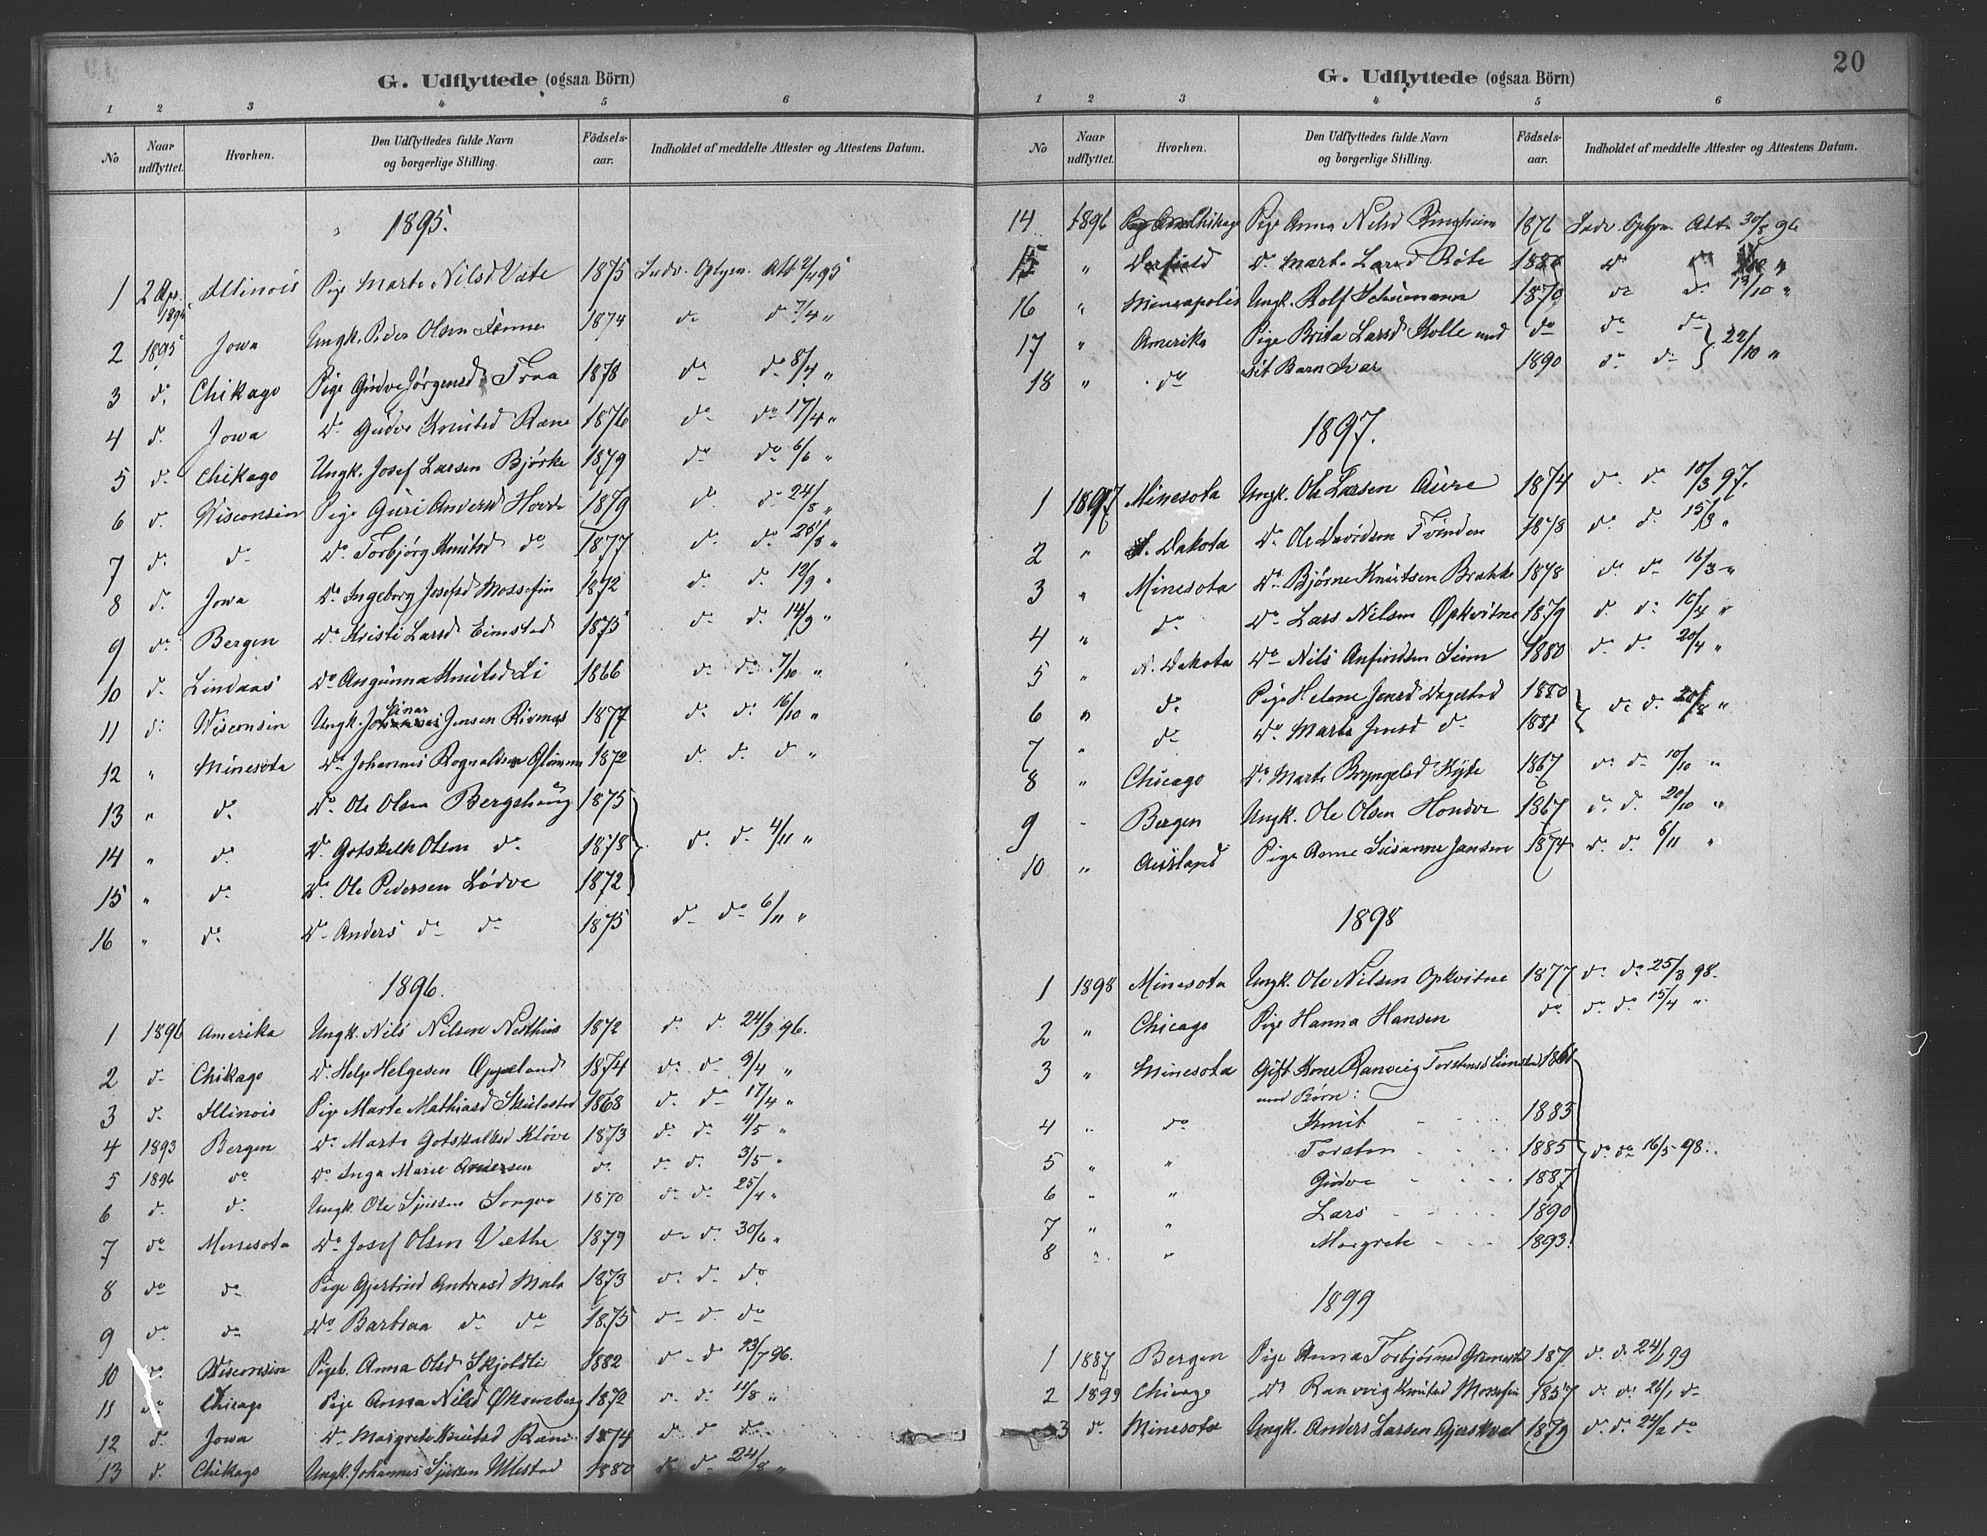 G. Udflyttede (ogsaa Börn)
1 2 3 4 5 6
No Naar udflyttet. Hvorhen. Den Udflyttedes fulde Navn og borgerlige Stilling. Födsels-aar. Indholdet af meddelte Attester og Attestens Datum.
1895.
1 2 Apr. 1895 Illinois Pige Marta Nilsd Væte 1875 Indv. Oplysn. Att 2/4 95
2 1895 Jowa Ungk. Peder Olsen 1874 do do 7/4 "
3 do Chikago Pige Gudve Jørgensd Traa 1878 do do 8/4 "
4 do Jowa Do Gudve Knutsd Ræne 1876 do do 17/4 "
5 do Chikago Ungk. Josef Larsen Bjørke 1879 do do 6/6 "
6 do Wisconsin Pige Guri Andersd Hovde 1879 do do 24/8 "
7 do do Do Torbjørg Knutsd do 1877 do do 25/8 "
8 do Jowa Do Ingeborg Josefsd Mossefin 1872 do do 12/9 "
9 do Bergen Do Kristi Larsd Eimstad 1875 do do 14/9 "
10 do Lindaas Do Angunna Knutsd Li 1866 do do 7/10 "
11 do Wisconsin Ungk. Einar Jensen Rivenes 1877 do do 16/10 "
12 " Minesota Do Johannes Rognaldsen 1872 do do do "
13 " do Do Ole Olsen Bergshaug 1875
14 " do Do Gotskalk Olsen do 1878 do do 4/11 "
15 " do Do Ole Pedersen Lødve 1872
16 " do Do Anders do do 1875 do do 6/11 "
1896.
1 1896 Amerika Ungk. Nils Nilsen Nesthus 1872 do do 24/3 96.
2 do Chikago Do Helge Helgesen Oppeland 1874 do do 9/4 "
3 do Illinois Pige Marta Mathiasd Skulestad 1868 do do 17/4 "
4 1893 Bergen Do Marta Gotskalksd Kløve 1873 do do 4/5 "
5 1896 do Do Inga Marie Andersen do do do 3/5 "
6 do do Ungk. Ole Sjursen Songve 1870 do do 25/4 "
7 do Minesota Do Josef Olsen Væthe 1879 do do 30/6 "
8 do do Pige Gjertrud Andreasd Mala 1873 do do do
9 do do Do Barbraa do do 1875 do do do
10 do Wisconsin Pigeb. Anna Olsd Skjeldli 1882 do do 23/7 96.
11 do Chicago Pige Anna Nilsd 1872 do do 11/8 "
12 do Jowa Do Margrete Knutsd Ræne 1874 do do do
13 do Chikago Ungk. Johannes Sjursen Ullestad 1880 do do 24/8 "
20
G. Udflyttede (ogsaa Börn)
1 2 3 4 5 6
No Naar udflyttet. Hvorhen. Den Udflyttedes fulde Navn og borgerlige Stilling. Födsels-aar. Indholdet af meddelte Attester og Attestens Datum.
14 1896 Chikago Pige Anna Nilsd Ringheim 1876 Indv. Oplysn. Att. 30/8 96
15 " Deerfield Do Marta Larsd Røte do do "
16 " Mineapolis Ungk. Rolf Schiemann 1870 do do 13/10 "
17 " Amerika Pige Brita Larsd Kolle med do do do
18 " do sit Barn Ivar 1890 do do 22/10 "
1897.
1 1897 Minesota Ungk. Ole Larsen Aure 1874 do do 10/3 97.
2 " Dakota Do Ole Davidsen Tvinden 1878 do do 15/3 "
3 " Minesota Do Bjørne Knutsen Brække 1878 do do 16/3 "
4 " do Do Lars Nilsen Opkvitne 1879 do do 16/4 "
5 " N. Dakota Do Nils Anfindsen Seim 1880 do do 20/4 "
6 " do Pige Helene Jensd Dagestad 1880
7 " do Do Marta Jensd do 1881 do do 20/8 "
8 " Chicago Do Marta Bryngelsd Kyte 1867 do do 10/10 "
9 - Bergen Ungk. Ole Olsen Hondve 1867 do do 20/10 "
10 " Aurland Pige Anne Susanne Jansen 1874 do do 6/11 "
1898
1 1898 Minesota Ungk. Ole Nilsen Opkvitne 1877 do do 25/3 98.
2 " Chicago Pige Hanna Hansen do do do 15/4 "
3 " Minesota Gift Kone Ranveig Torstensd 1861
med Børn:
4 " do Knut 1883
5 " " Torsten 1885 do do 16/5 98.
6 " " Gudve 1887
7 " " Lars 1890
8 " " Margrete 1893.
1899
1 1887 Bergen Pige Anna Torbjørnsd 187 do do 24/1 99
2 1899 Chicago Do Ranveig Knutsd Mossefin 1857 do do 26/1 do
3 do Minesota Ungk. Anders Larsen Gjerskval 1879 do do 24/2 do